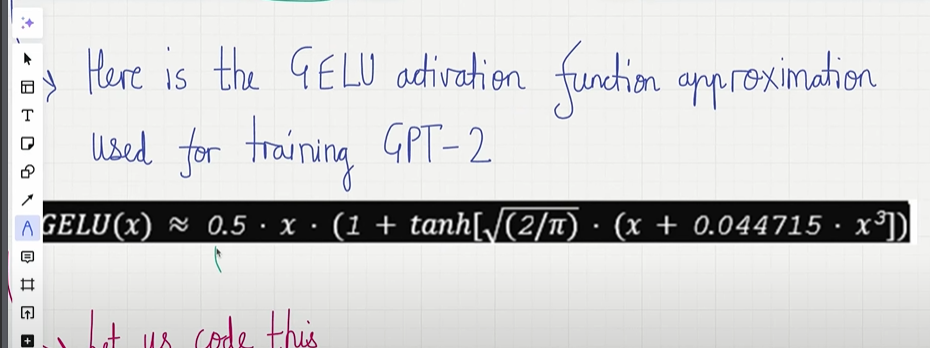 Here is the GELU activation function approximation
used for training GPT-2
GELU(x) ≈ 0.5 · x · (1 + tanh[√(2/π) · (x + 0.044715 · x³])
Let us code this